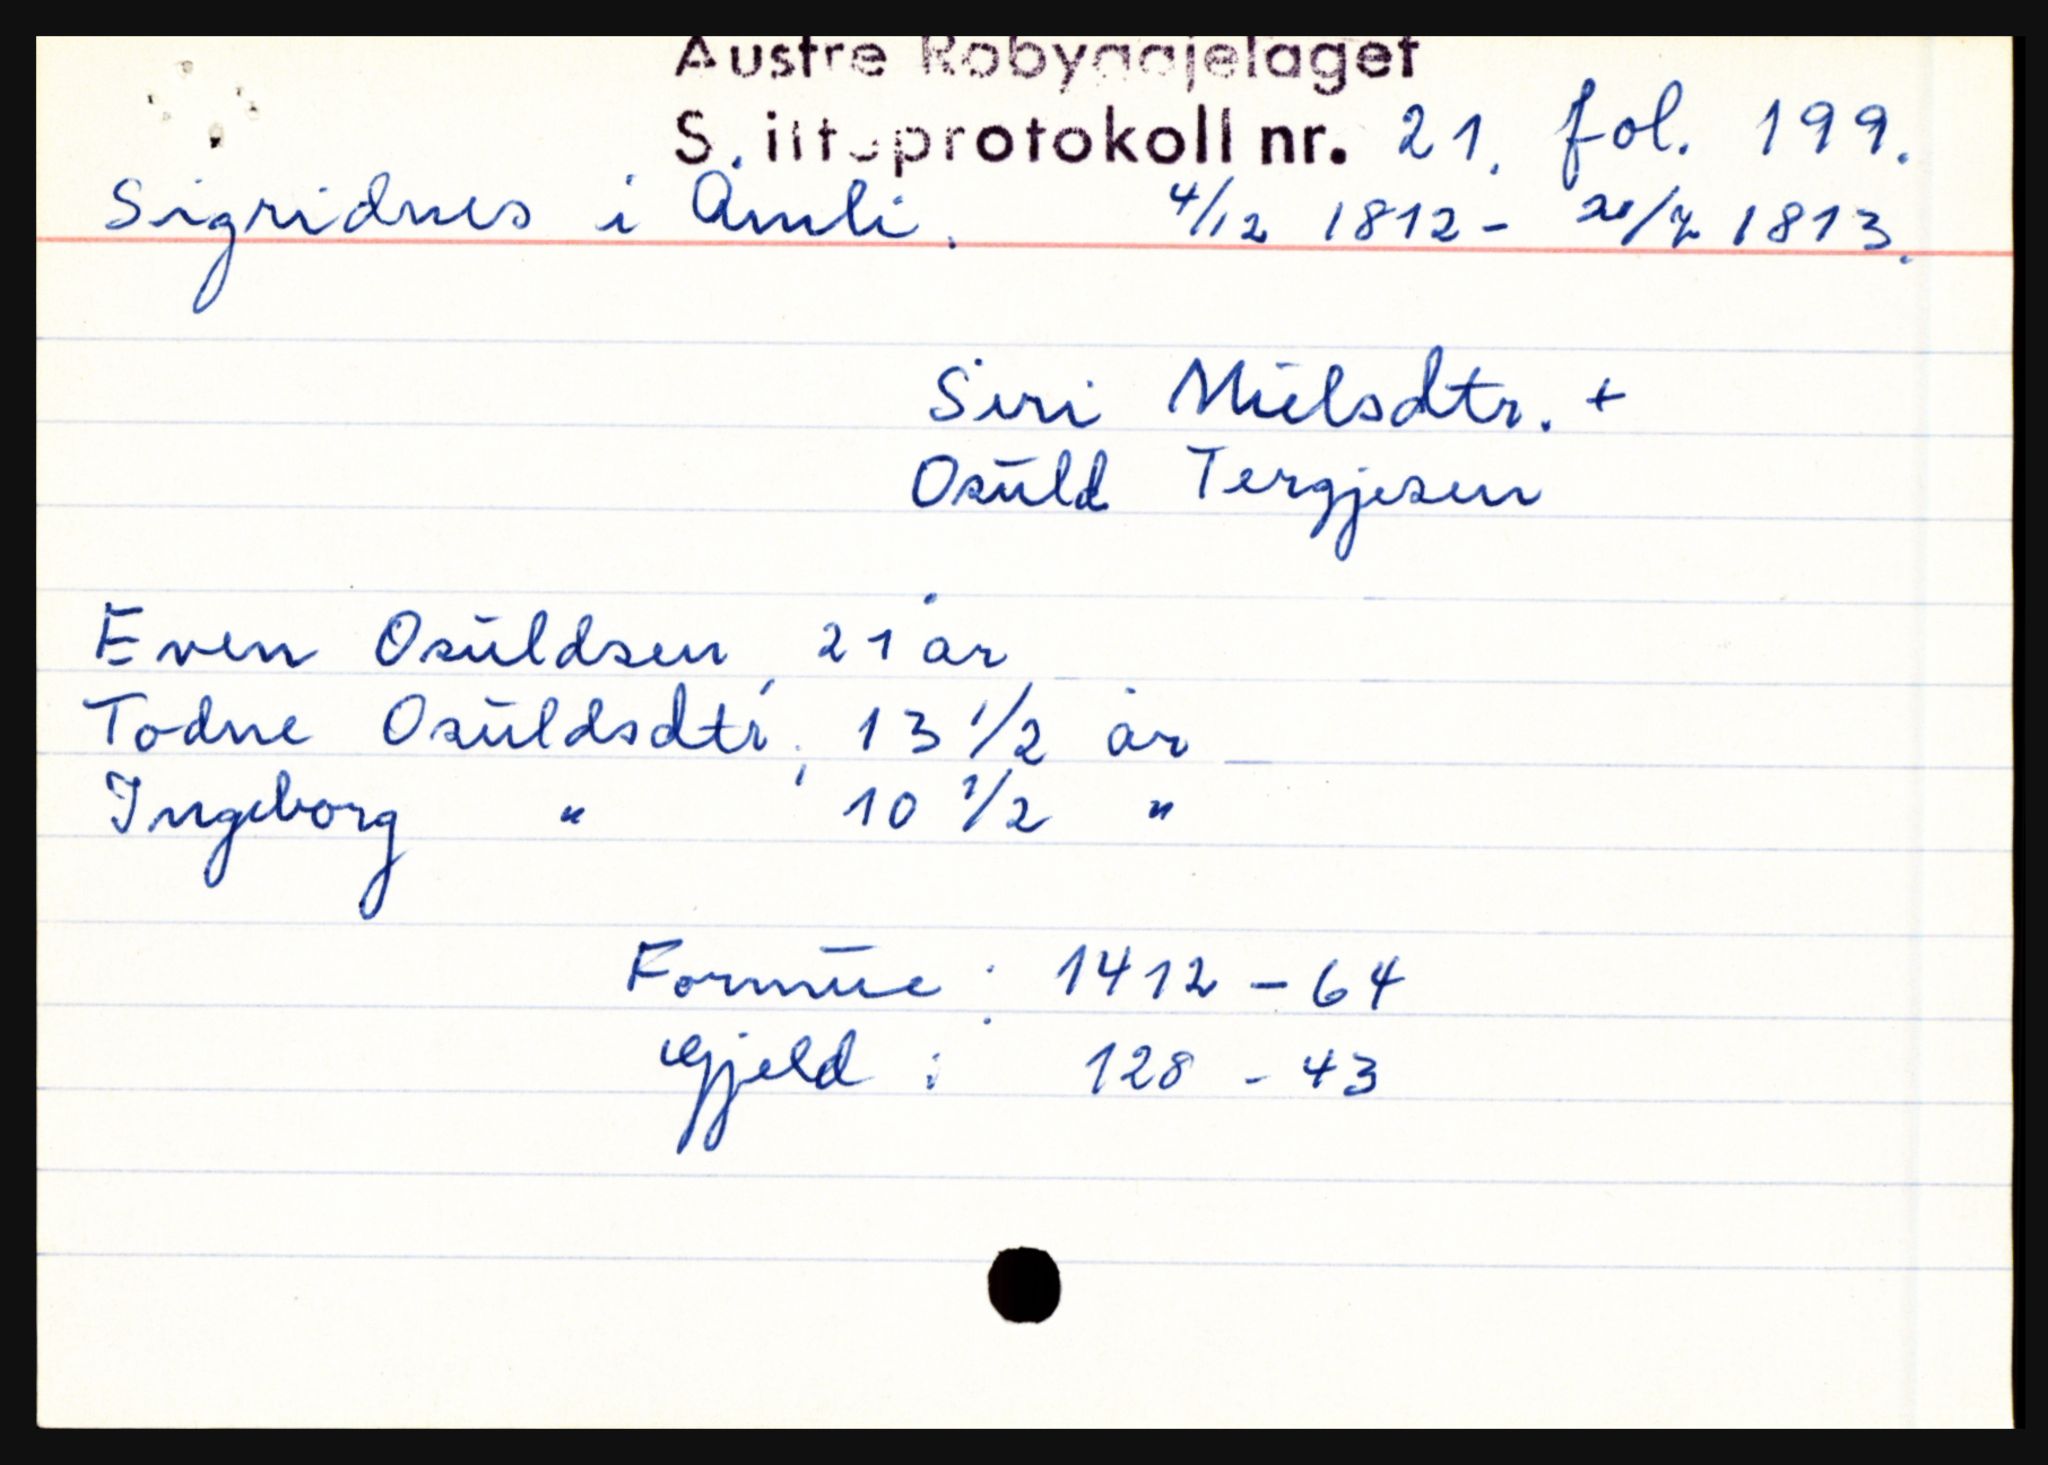 Austre Robyggjelaget
Skifteprotokoll nr. 21. fol. 199.
Sigridnes i Åmli. 4/12 1812 - 20/7 1813.
Siri Nielsdtr. +
Osuld Tergjesen
Even Osuldsen, 21 år
Todne Osuldsdtr., 13 1/2 år
Ingeborg " , 10 1/2 "
Formue : 1412 - 64
Gjeld : 128 - 43